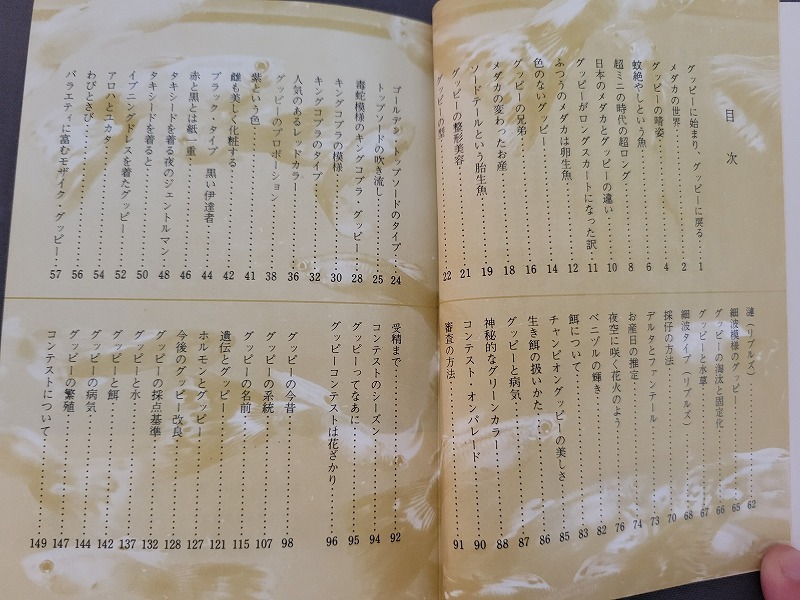 目次
グッピーに始まり、グッピーに戻る……1
メダカの世界……2
グッピーの晴姿……4
蚊絶やしという魚……6
超ミニの時代の超ロング……8
日本のメダカとグッピーの違い……10
グッピーがロングスカートになった訳……11
ふつうのメダカは卵生魚……12
色のないグッピー……14
グッピーの兄弟……16
メダカの変わったお産……18
ソードテールという胎生魚……19
グッピーの整形美容……21
グッピーの型……22
ゴールデン・トップソードのタイプ……24
トップソードの吹き流し……25
毒蛇模様のキングコブラ・グッピー……28
キングコブラの模様……30
キングコブラのタイプ……32
人気のあるレッドカラー……36
グッピーのプロポーション……38
紫という色……41
雌も美しく化粧する……42
ブラック・タイプ 黒い伊達者……44
赤と黒とは紙一重……46
タキシードを着る夜のジェントルマン……48
タキシードを着ると……50
イブニングドレスを着たグッピー……52
アロハとユカタ……54
わびとさび……56
バラエティに富むモザイク・グッピー……57
漣（リプルズ）……62
細波模様のグッピー……65
グッピーの淘汰と固定化……66
グッピーと水草……67
細波タイプ（リプルズ）……68
採仔の方法……70
デルタとファンテール……73
お産日の推定……74
夜空に咲く花火のよう……76
ベニヅルの輝き……82
餌について……83
チャンピオングッピーの美しさ……85
生き餌の扱いかた……86
グッピーと病気……87
神秘的なグリーンカラー……88
コンテスト・オンパレード……90
審査の方法……91
受精まで……92
コンテストのシーズン……94
グッピーってなあに……95
グッピーコンテストは花ざかり……96
グッピーの今昔……98
グッピーの系統……107
グッピーの名前……115
遺伝とグッピー……121
ホルモンとグッピー……127
今後のグッピー改良……128
グッピーの採点基準……132
グッピーと水……137
グッピーと餌……142
グッピーの病気……144
グッピーの繁殖……147
コンテストについて……149